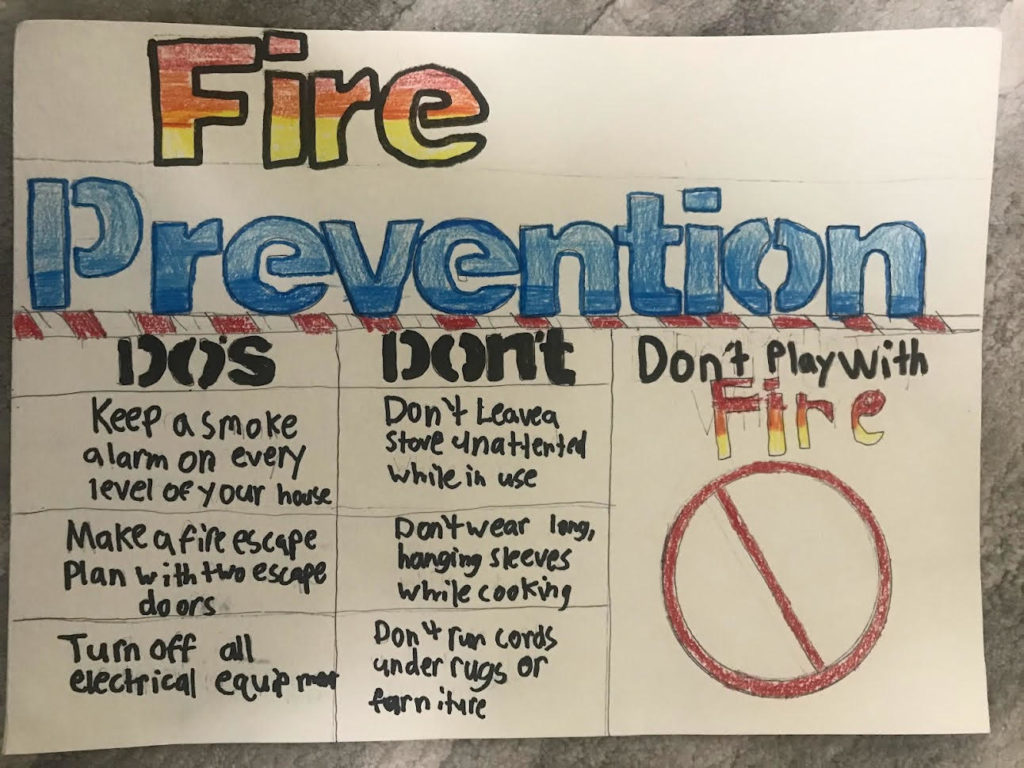 Fire
Prevention
DO's
Keep a smoke
alarm on every
level of your house
Make a fire escape
Plan with two escape
doors
Turn off all
electrical equipment
Don't
Don't Leave a
stove unattented
while in use
Don't wear long,
hanging sleeves
while cooking
Don't run cords
under rugs or
farniture
Don't Play With
Fire